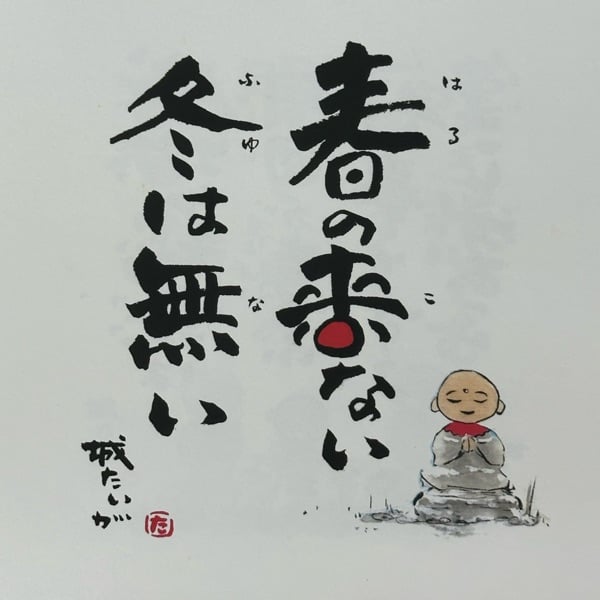 春の来ない
はる
こ
冬は無い
ふゆ
な
城たいが
た